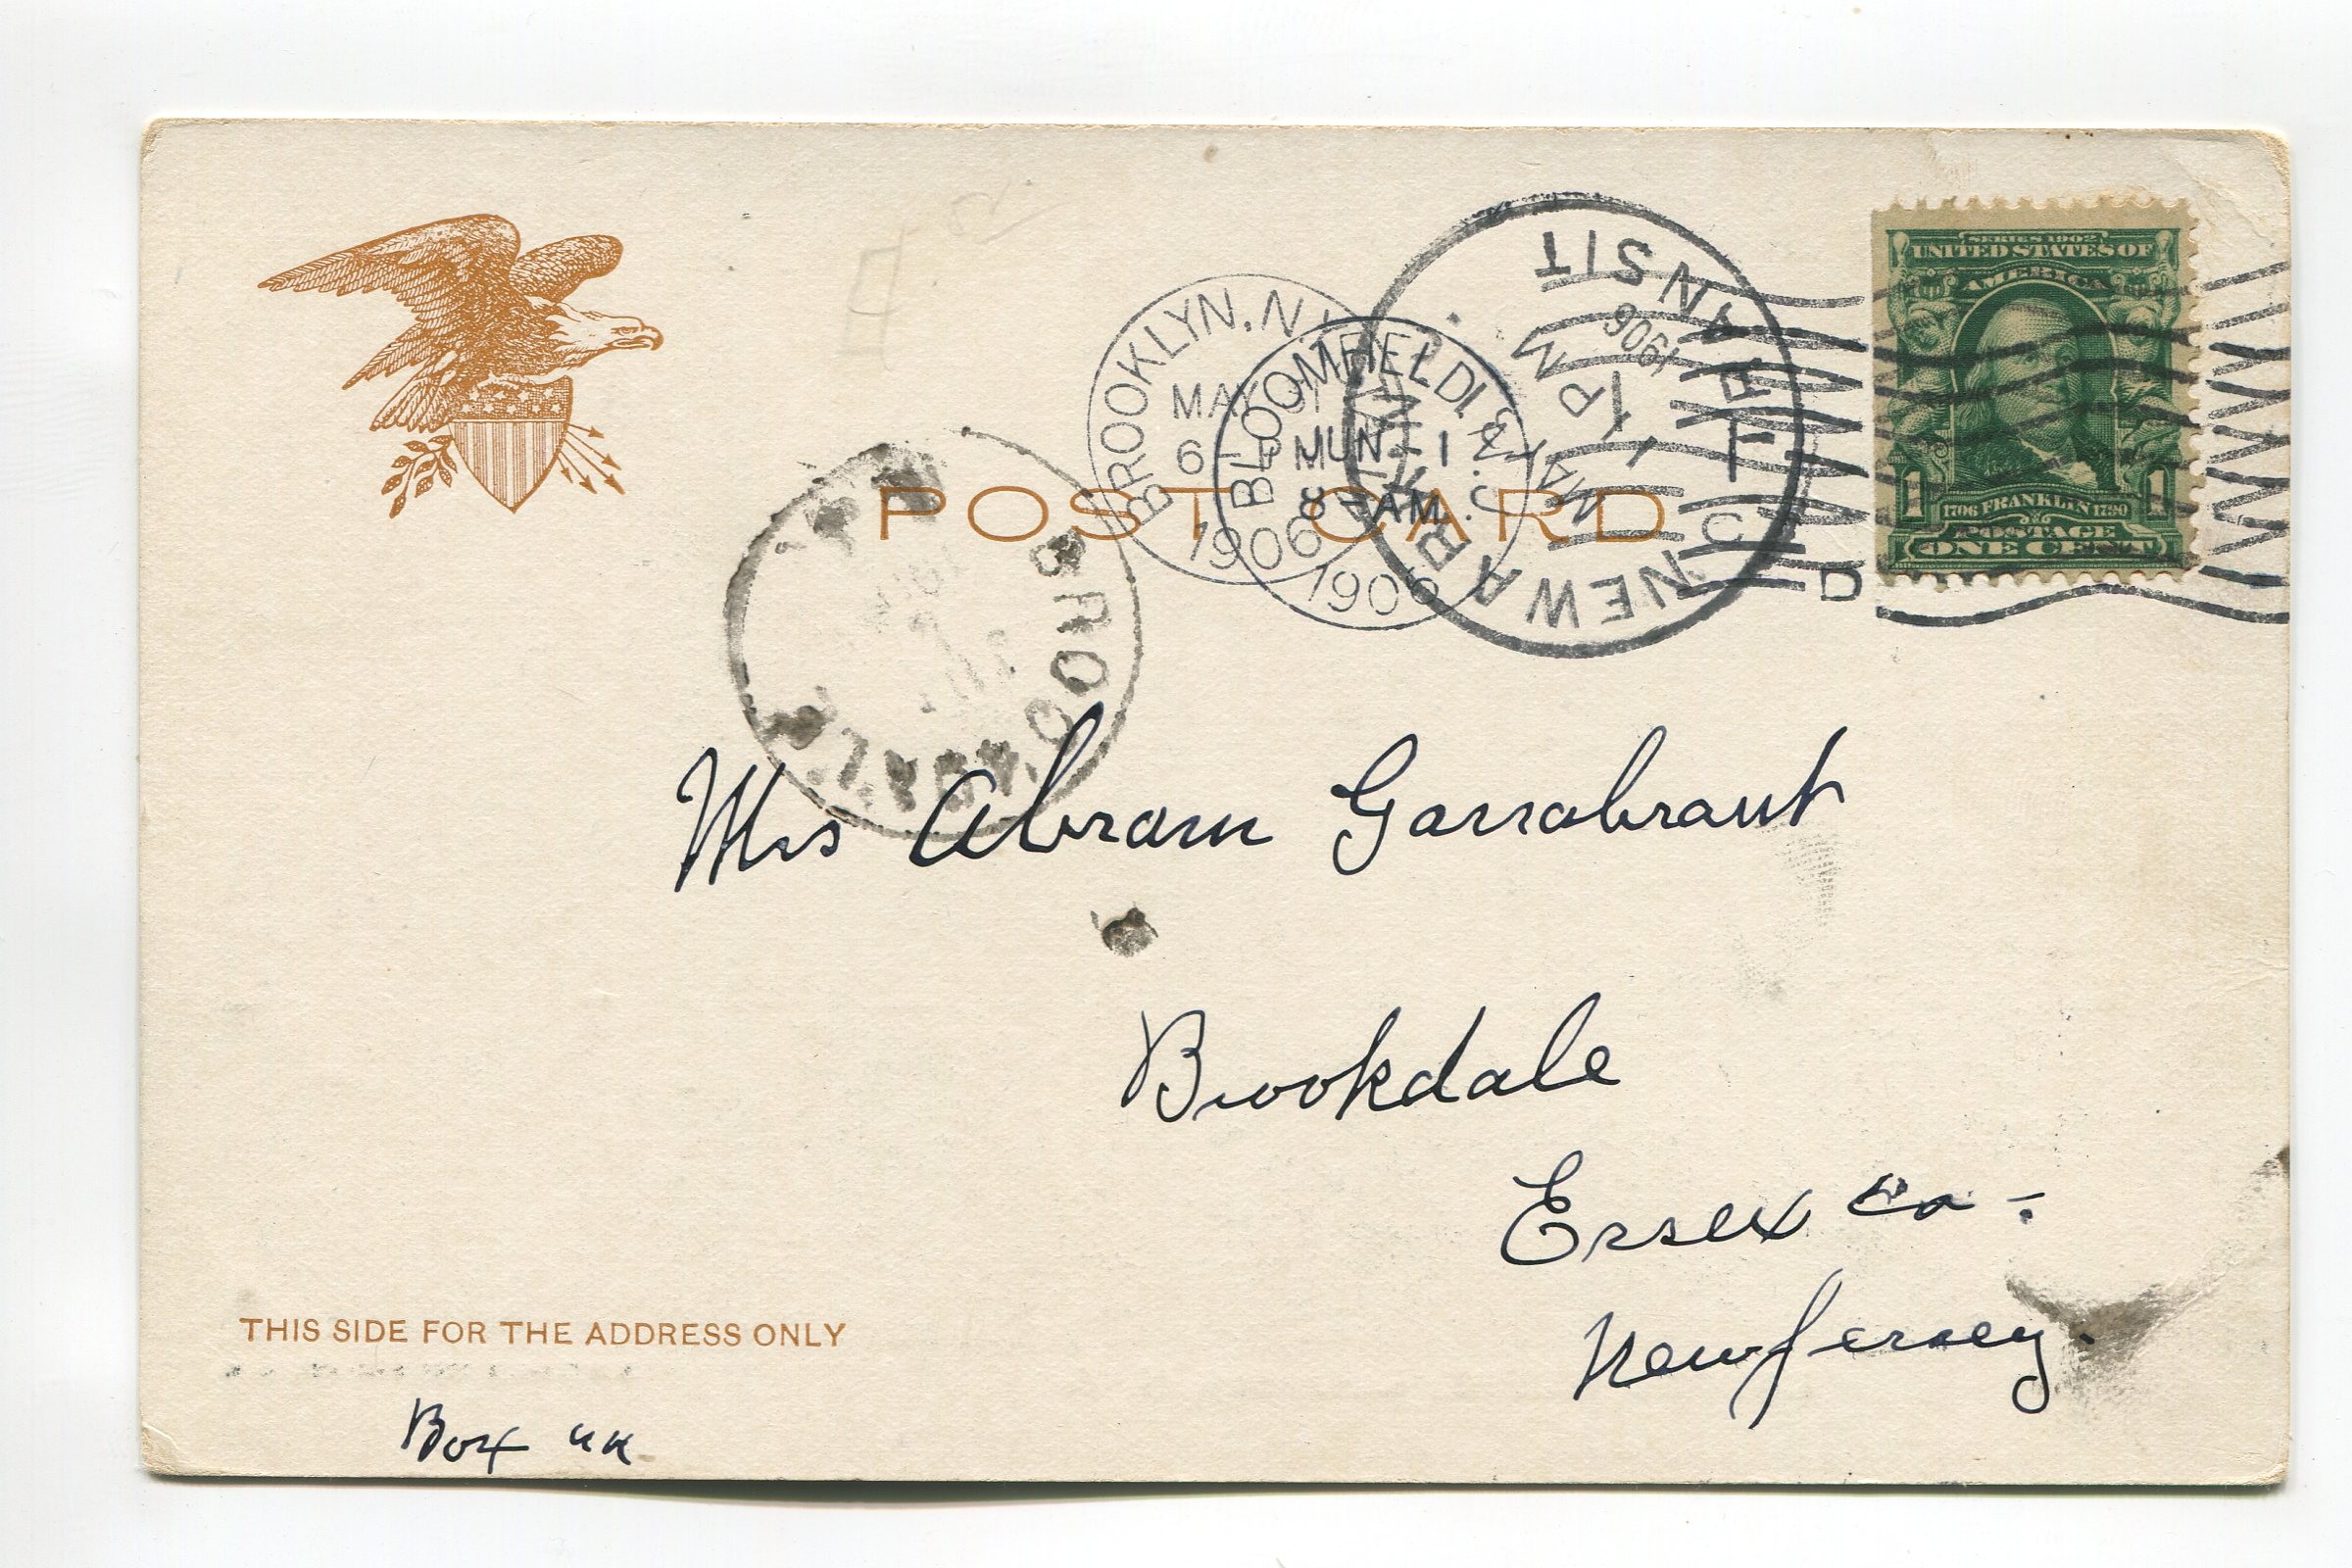 BROOKLYN, N.Y.
MAY 31
6 - P M
1906
BLOOMFIELD, N.J.
JUN 1
8 - AM
1906
NEWARK, N.J.
MAY
1 PM
1906
TRANSIT
D
SERIES 1902
UNITED STATES OF
AMERICA
1 1706 FRANKLIN 1790 1
POSTAGE
ONE CENT
POST CARD
BROOKDALE
Mrs Abram Garrabrant
Brookdale
Essex Co -
New Jersey.
THIS SIDE FOR THE ADDRESS ONLY
Box